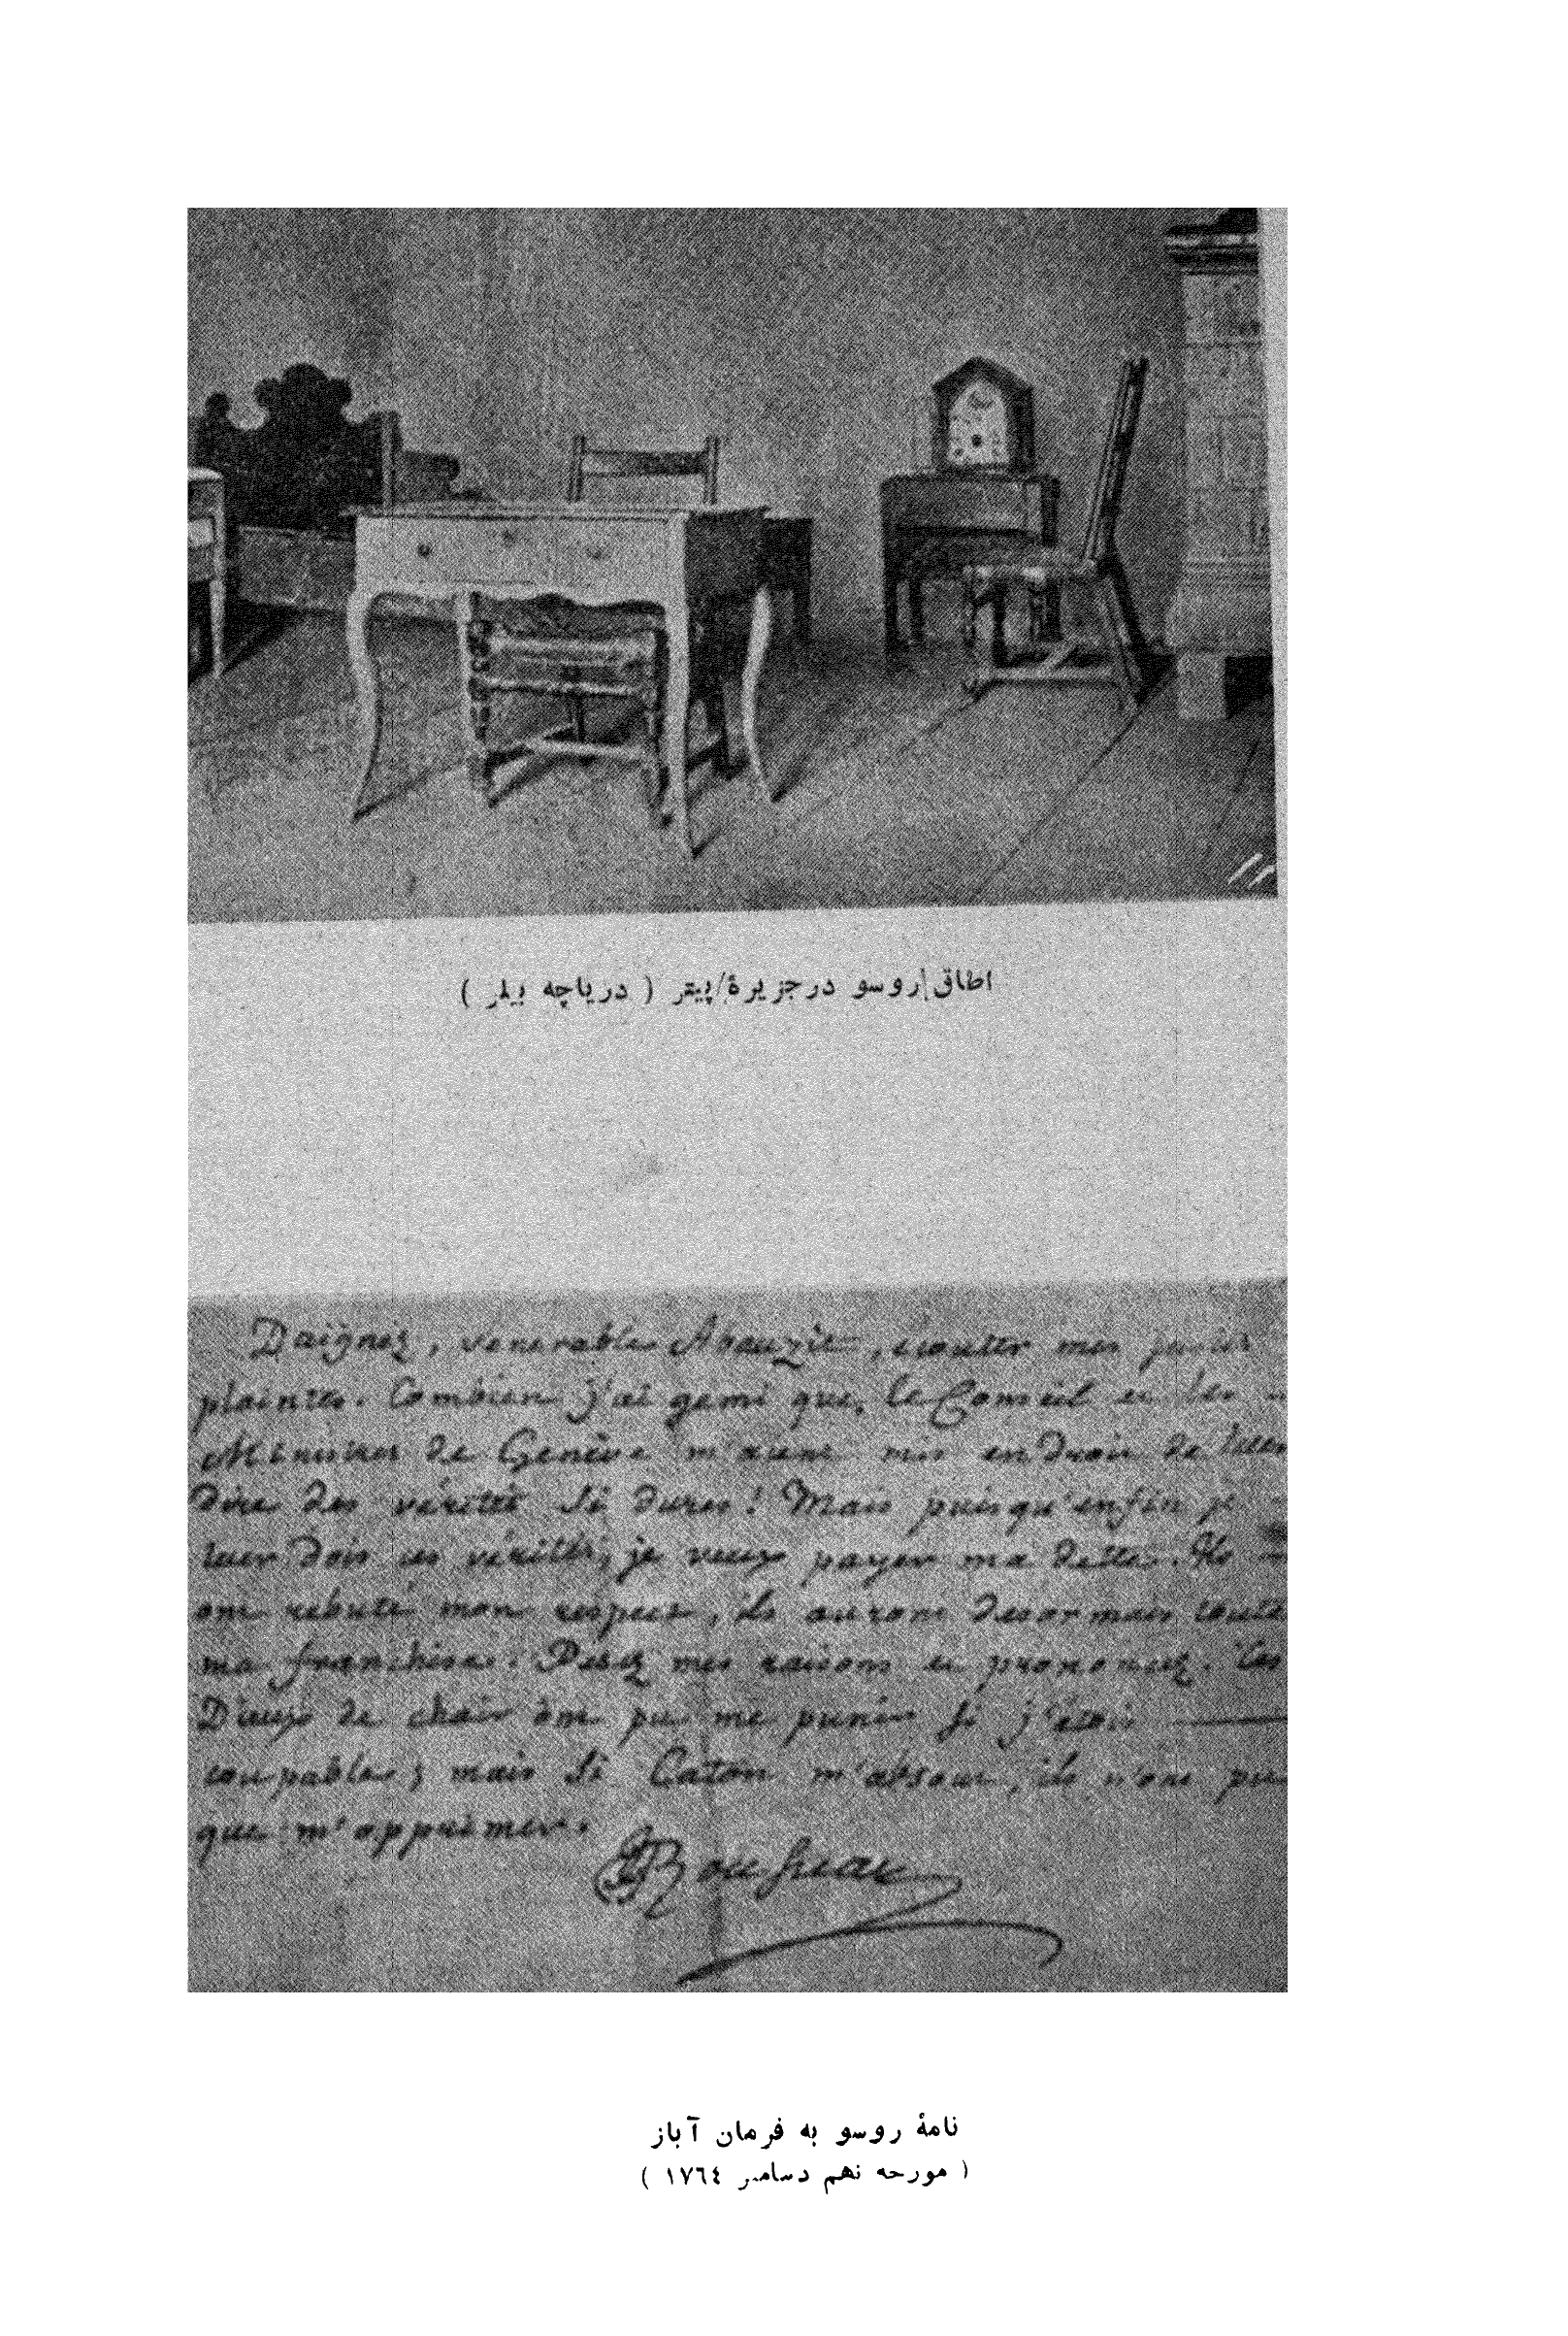 اطاق روسو در جزیرهٔ پیتر ( دریاچه بیلر )
Daignez, venerable Abauzit, écouter mes justes
plaintes. Combien j'ai gemi que le Conseil et les
Ministres de Genève m'aient mis en droit de leur
dire des vérités si dures ! Mais puisqu'enfin je
leur dois ces vérités, je veux payer ma dette. Ils
ont rebuté mon respect, ils auront desormais toute
ma franchise. Pesez mes raisons et prononcez. Ces
Dieux de chair ont pu me punir si j'étois
coupable ; mais si Caton m'absout, ils n'ont pu
que m'opprimer.
JJRousseau
نامهٔ روسو به فرمان آباز
( مورحه نهم دسامبر ١٧٦٤ )